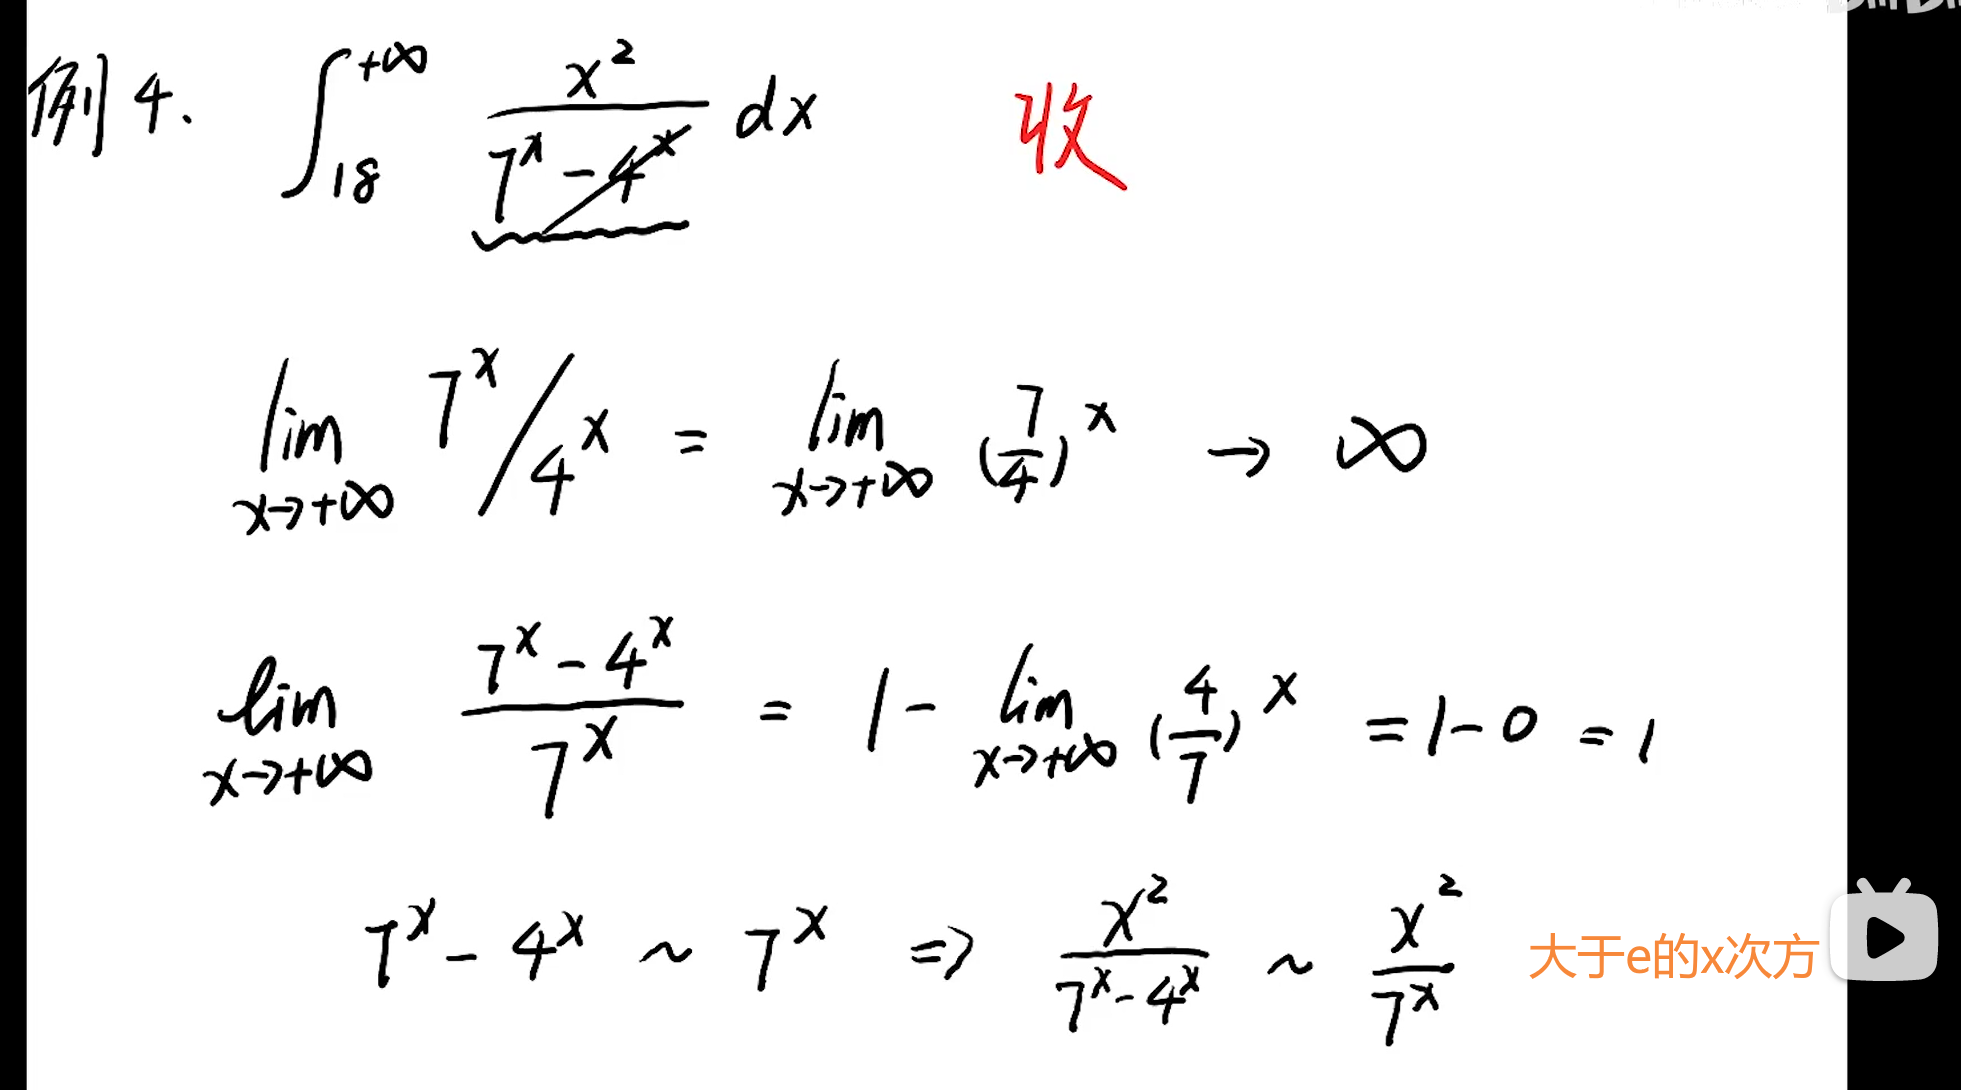 例4. ∫₁₈^{+∞} x²/(7^x - 4^x) dx 收
lim_{x→+∞} 7^x/4^x = lim_{x→+∞} (7/4)^x → ∞
lim_{x→+∞} (7^x - 4^x)/7^x = 1 - lim_{x→+∞} (4/7)^x = 1 - 0 = 1
7^x - 4^x ~ 7^x ⇒ x²/(7^x - 4^x) ~ x²/7^x 大于e的x次方